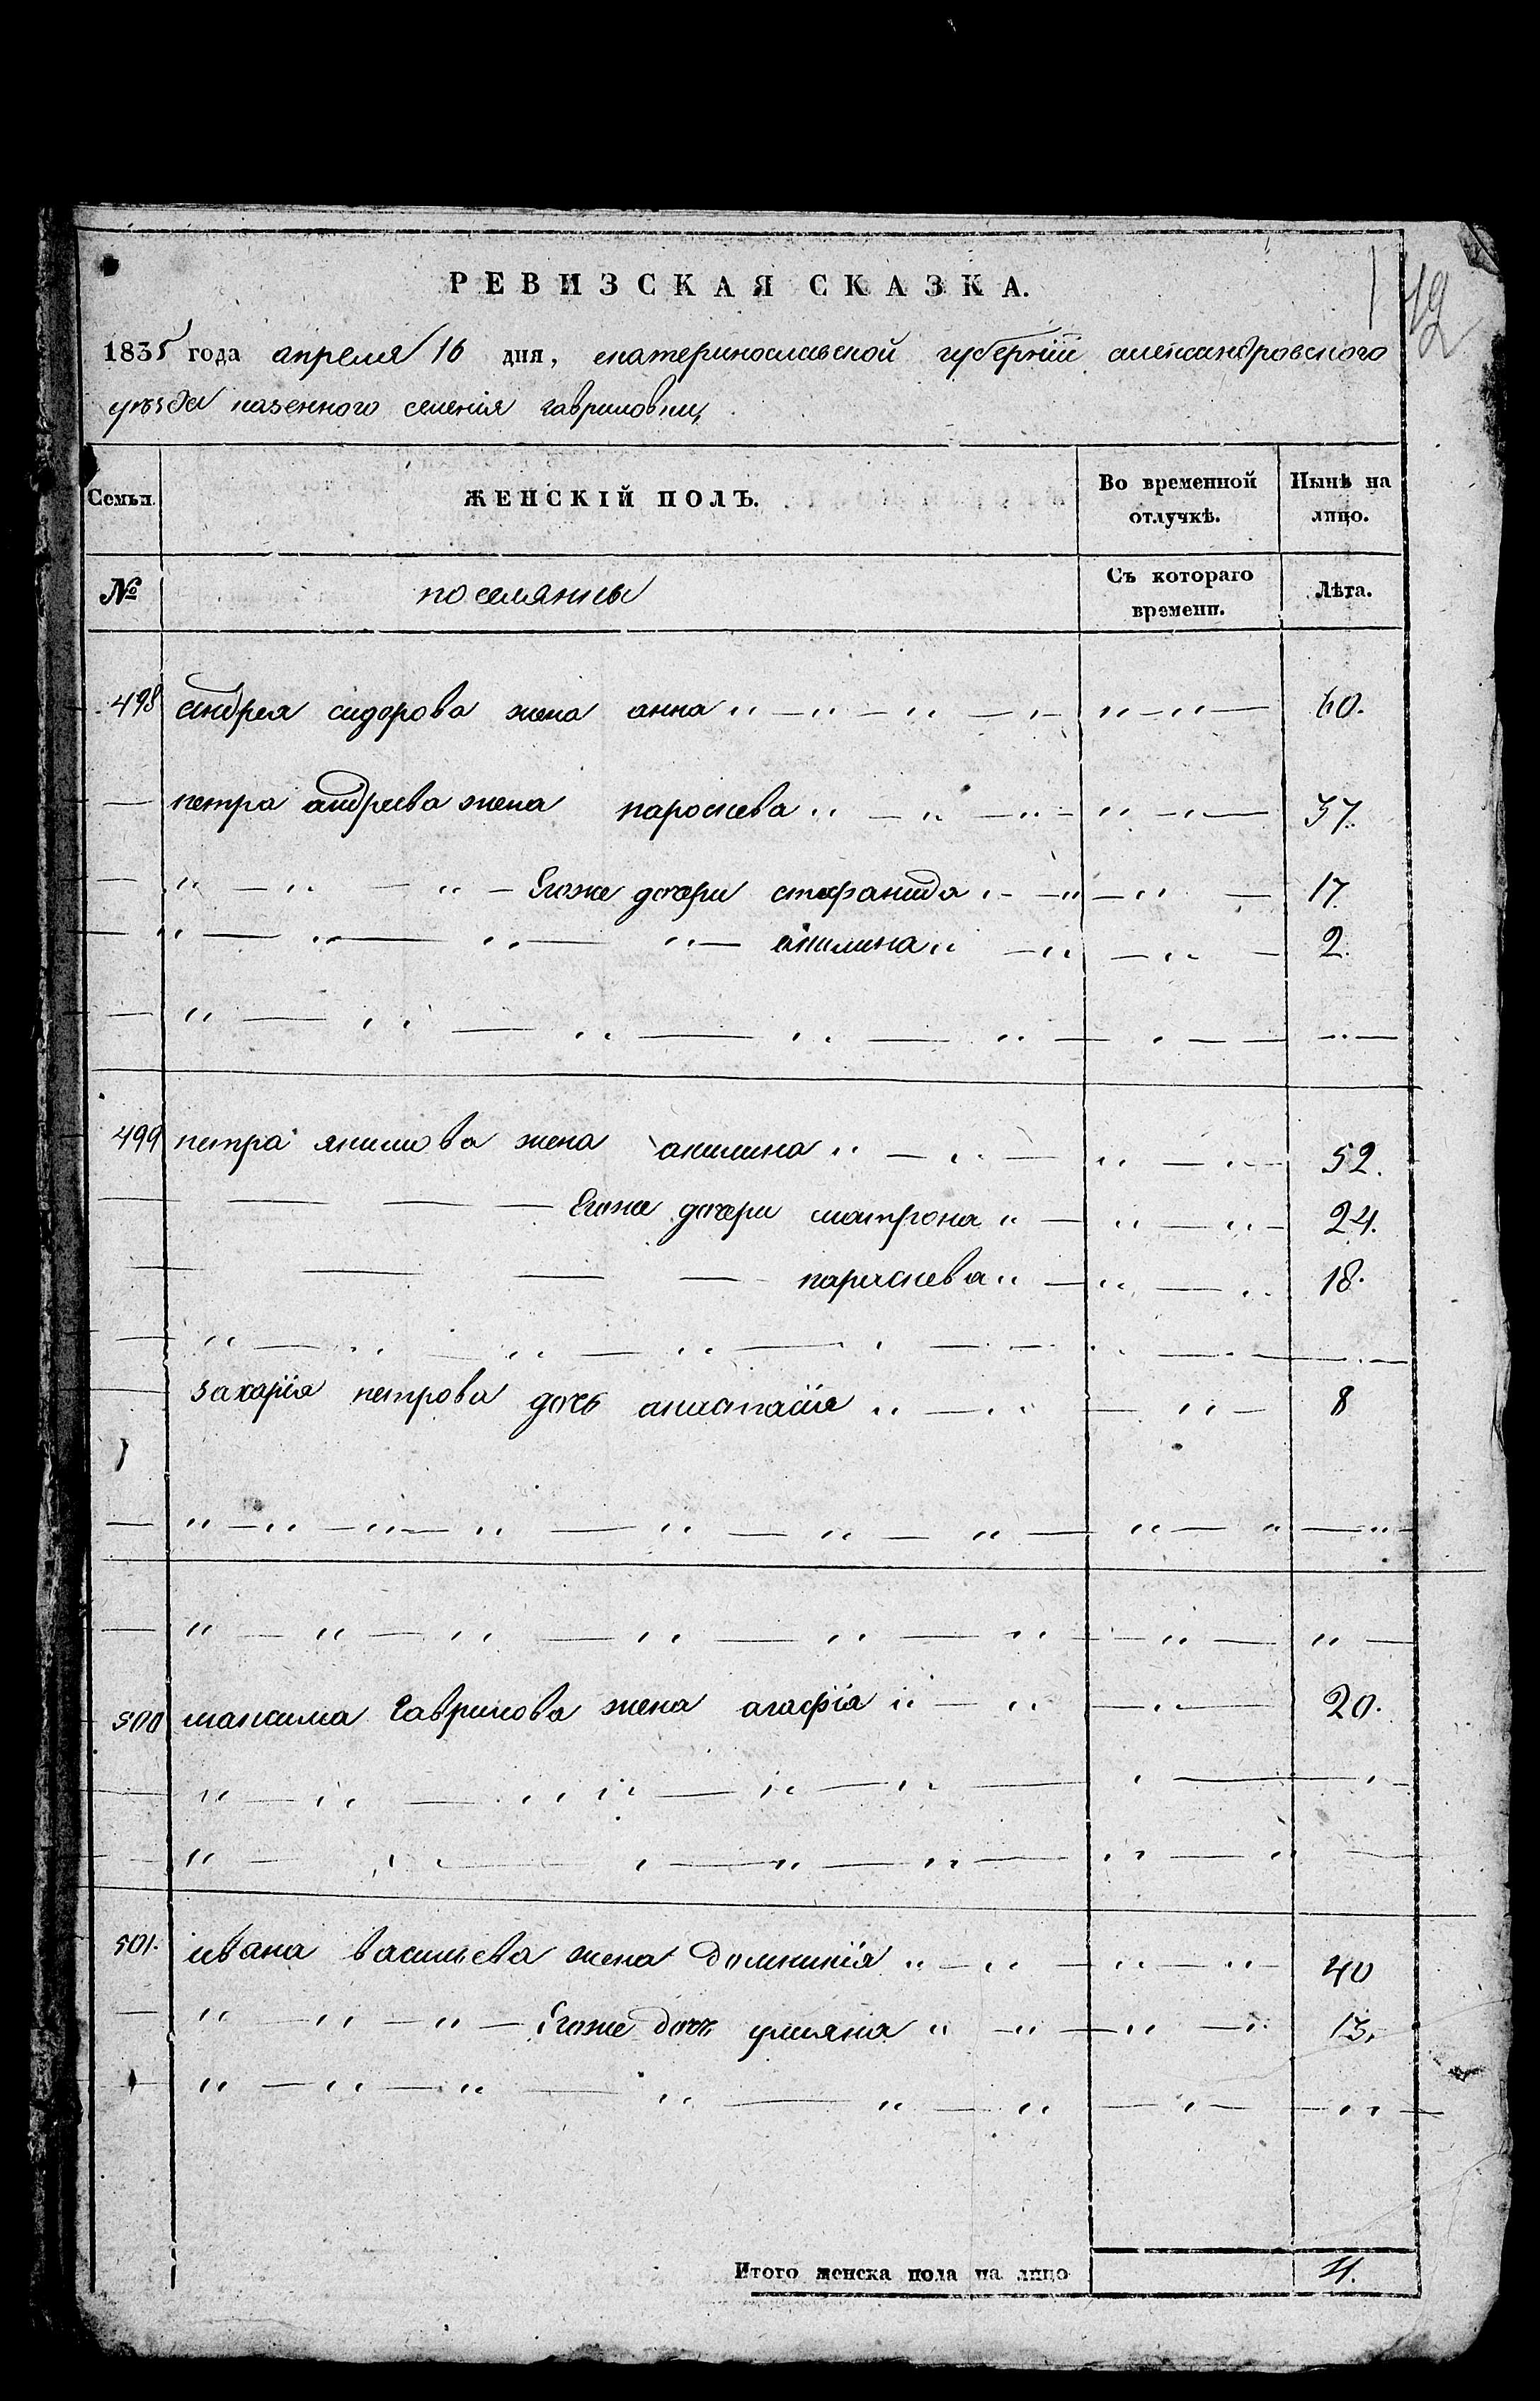 РЕВИЗСКАЯ СКАЗКА.
1835 года апреля 16 дня, екатеринославской губернїи александровского
уѣзда казенного селенїя гавриловки,
Семьи. ЖЕНСКІЙ ПОЛЪ. Во временной отлучкѣ. Нынѣ на лицо.
№ поселянъ Съ котораго времени. Лѣта.
498 андрея сидорова жена анна 60.
петра андреева жена пароскева 37.
Егоже дочери стефанида 17.
акилина 2.
499 петра якимова жена акилина 52.
Егоже дочери матрона 24.
параскева 18.
захарїя петрова дочь анастасїя 8
500 максима гаврилова жена агафїя 20.
501. ивана васильева жена домникїя 40
Егоже дочь ульяна 13.
Итого женска пола на лицо